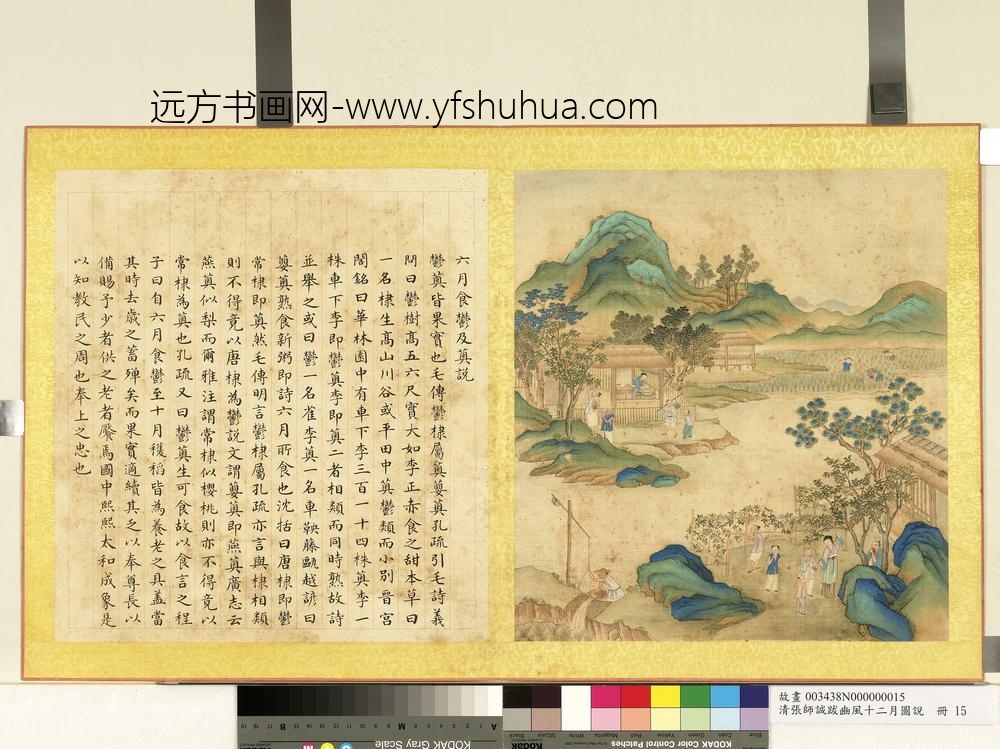 远方书画网-www.yfshuhua.com
六月食鬱及薁說
鬱薁皆果實也毛傳鬱棣屬薁蘡薁孔疏引毛詩義
問曰鬱樹髙五六尺實大如李正赤食之甜本草曰
一名棣生髙山川谷或平田中薁鬱類而小別晉宫
閣銘曰華林園中有車下李三百一十四株薁李一
株車下李即鬱薁李即薁二者相類而同時熟故詩
並舉之或曰鬱一名雀李薁一名車鞅藤甌越諺曰
蘡薁熟食新粥即詩六月所食也沈括曰唐棣即鬱
常棣即薁然毛傳明言鬱棣屬孔疏亦言與棣相類
則不得竟以唐棣為鬱説文謂蘡薁即燕薁廣志云
燕薁似梨而爾雅注謂常棣似櫻桃則亦不得竟以
常棣為薁也孔疏又曰鬱薁生可食故以食言之程
子曰自六月食鬱至十月穫稻皆為養老之具盖當
其時去歲之蓄殫矣而果實適續其乏以奉尊長以
備賜予少者供之老者饜焉國中熙熙太和成象是
以知教民之周也奉上之忠也
故畫 003438N000000015
清張師誠跋豳風十二月圖說 冊 15
KODAK Gray Scale
KODAK Color Control Patches
Kodak